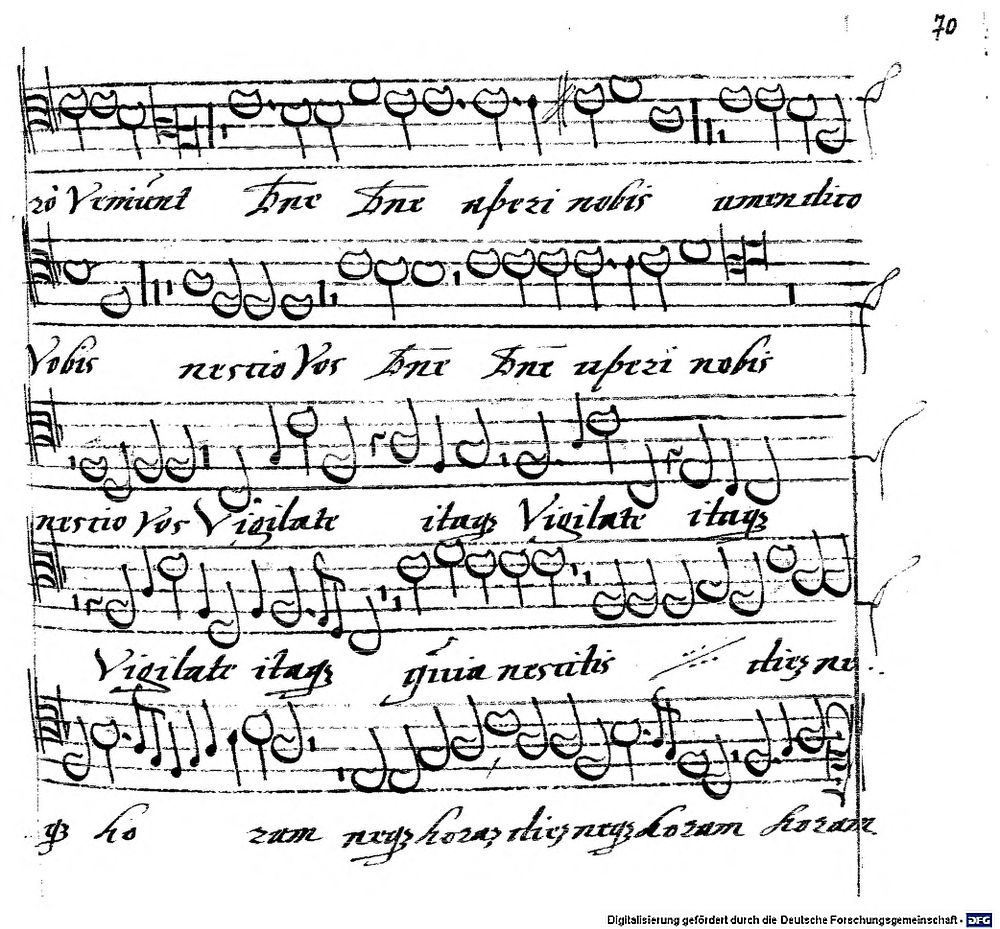 70
ro Veniunt Dne Dne aperi nobis amen dico
Vobis nescio Vos Dne Dne aperi nobis
nescio Vos Vigilate itaqȝ Vigilate itaqȝ
Vigilate itaqȝ quia nescitis dieȝ ne
qȝ ho ram neqȝ horaȝ dieȝ neqȝ horam horam
Digitalisierung gefördert durch die Deutsche Forschungsgemeinschaft - DFG